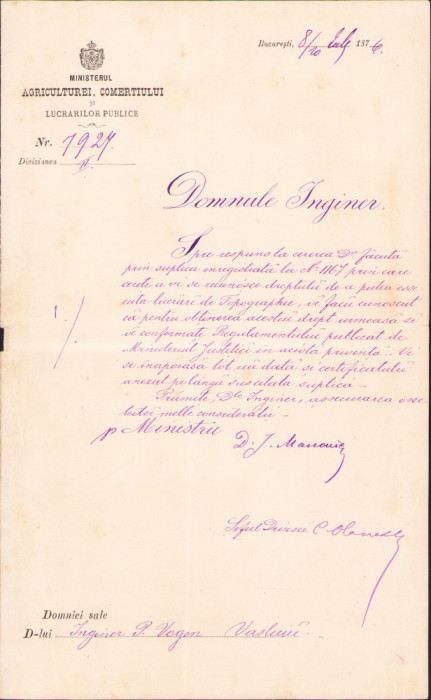 București, 8/20 Iulie 1876.
MINISTERUL
AGRICULTUREI, COMERTIULUI
ȘI
LUCRARILOR PUBLICE
Nr. 7927
Diviziunea II.
Domnule Inginer.
Spre respuns la cererea Dv făcută
prin suplica onregistrată la No 1167 prin care
cereți a vi se recunósce dreptulŭ de a putea esse
cuta lucrări de Topographie, vĕ facŭ cunoscut
că pentru obtinerea acestui drept urmeasă să
vĕ conformați Regulamentului publicat de
Ministerul Justiției in acéstă privență. Vi
se inapoiasă tot uă dată și certificatulŭ
anexat pe lângă suscitata suplică.
1./.
Primite, Dle Inginer, assecurarea osse
bitei melle consideratii.
p Ministru
D. J.
Șeful Divisiei C.
Domniei sale
D-lui Inginer P. Vogon Vasluiŭ.